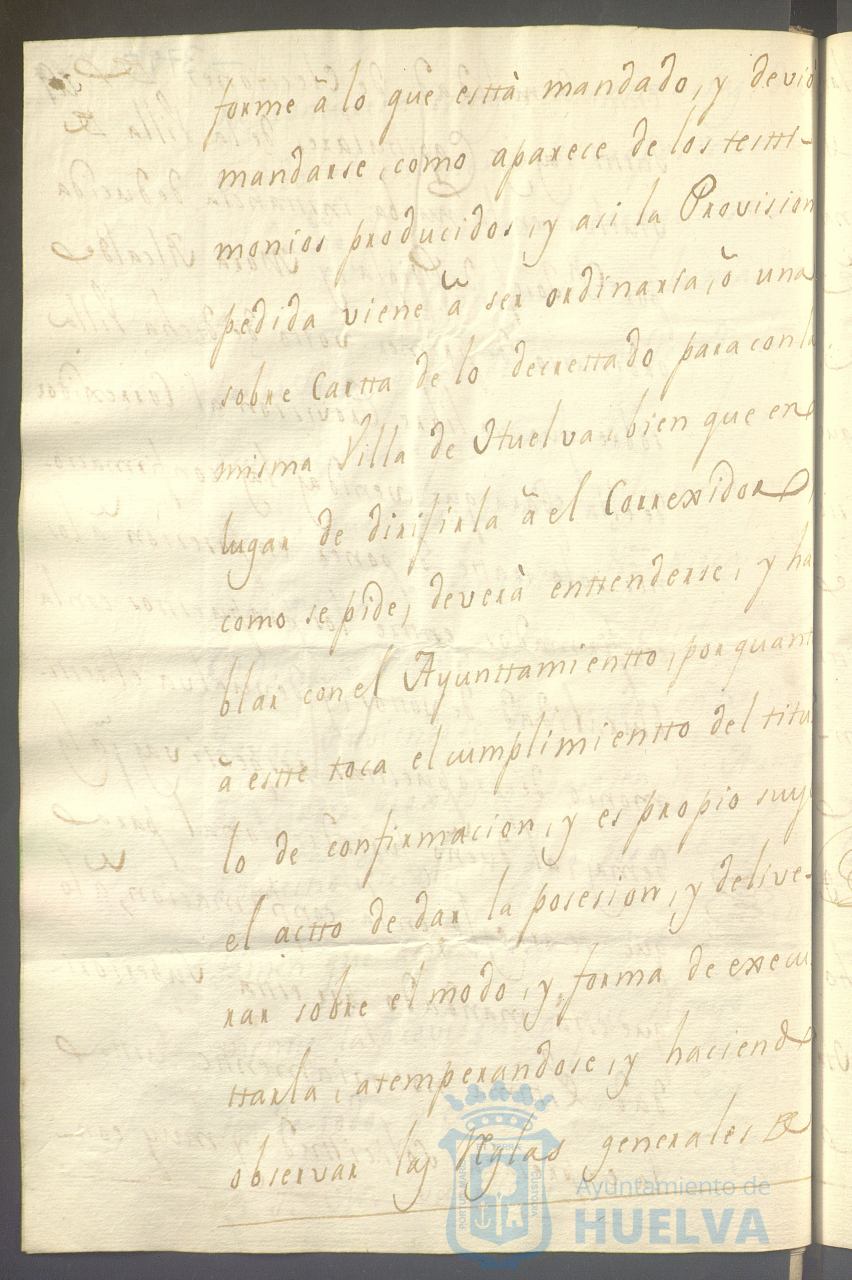 forme â lo que esttà mandado, y deviò
mandarse, como aparece de los testti-
monios producidos, y asi la Provision
pedida viene â ser ordinaria, ô una
sobre Cartta de lo decrettado para con la
misma Villa de Huelva, bien que en
lugar de dirifirla â el Correxidor
como se pide, deverà enttenderse, y ha
blar con el Ayunttamientto, por quant
â estte toca el cumplimientto del titu
lo de confirmacion, y es propio suy
el actto de dar la posesion, y delive-
rar sobre el modo, y forma de execu
ttarla, atemperandose, y haciend
observar las Reglas generales
Ayuntamiento de
HUELVA